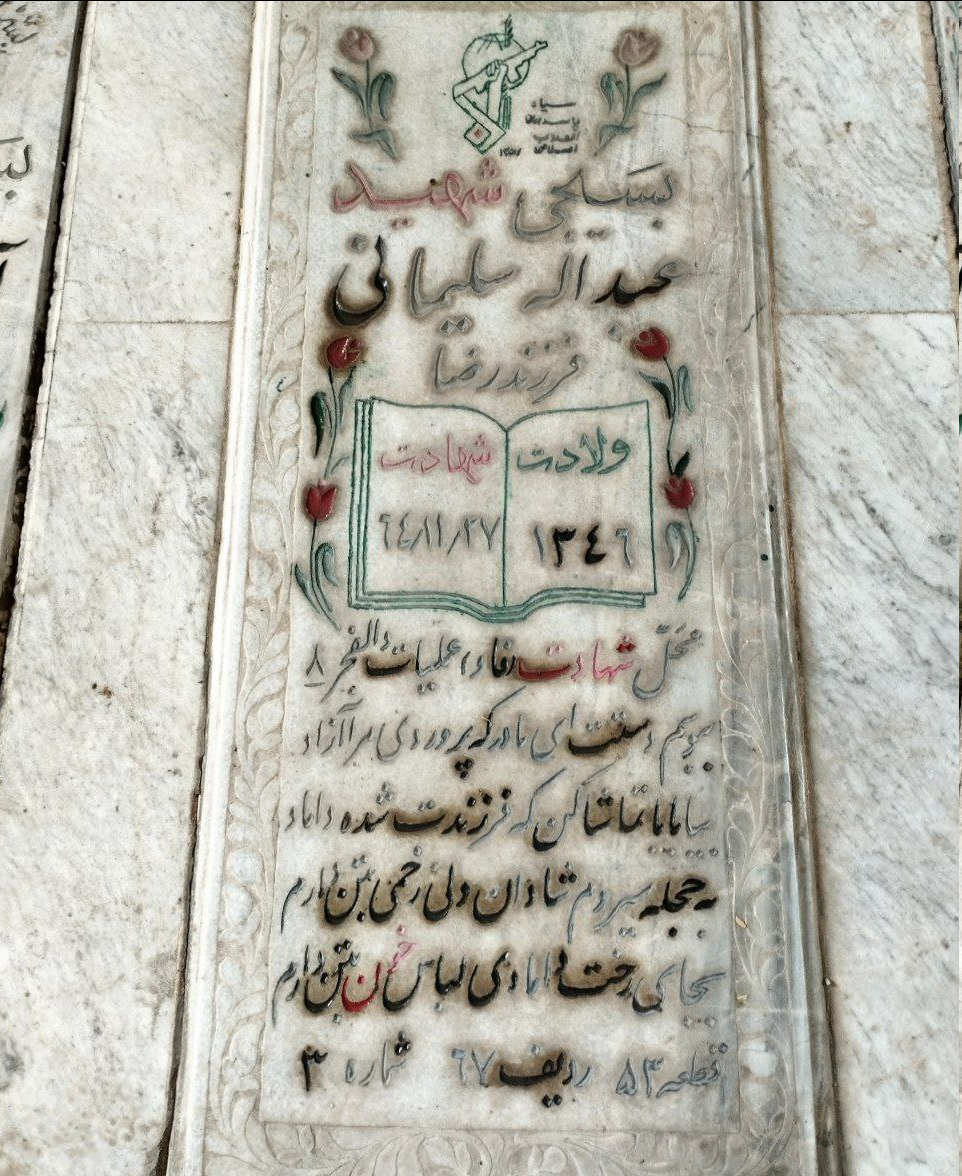 سپاه
پاسداران
انقلاب
اسلامی
۱۳۵۷
بسیجی شهید
عبداله سلیمانی
فرزند رضا
ولادت شهادت
۱۳٤٦ ٦٤/۱۱/۲۷
محل شهادت فاو عملیات والفجر ۸
ببوسم دستت ای مادر که پروردی مرا آزاد
بیا بابا تماشا کن که فرزندت شده داماد
به حجله میروم شادان ولی زخمی بتن دارم
بجای رخت دامادی لباس خون بتن دارم
قطعه ۵۳ ردیف ٦۷ شماره ۳